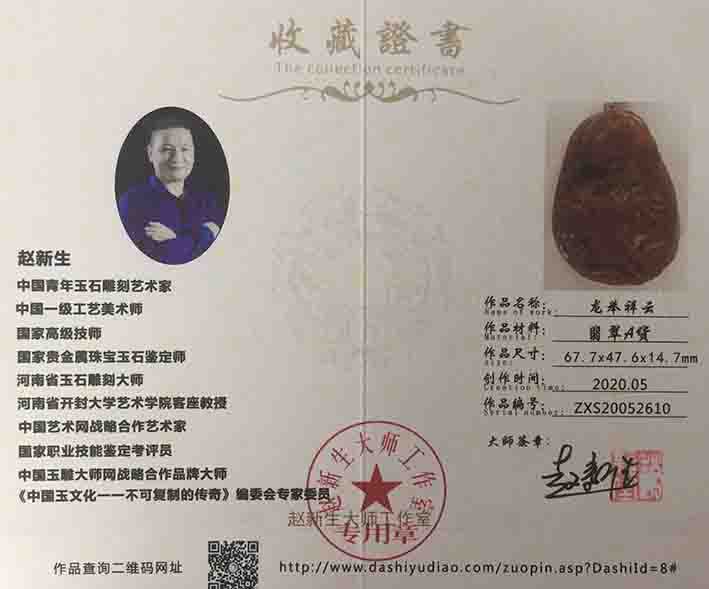 收藏證書
The collection certificate
赵新生
中国青年玉石雕刻艺术家
中国一级工艺美术师
国家高级技师
国家贵金属珠宝玉石鉴定师
河南省玉石雕刻大师
河南省开封大学艺术学院客座教授
中国艺术网战略合作艺术家
国家职业技能鉴定考评员
中国玉雕大师网战略合作品牌大师
《中国玉文化一一不可复制的传奇》编委会专家委员
作品名称: 龙举祥云
Name of work:
作品材料: 翡翠A货
Material:
作品尺寸: 67.7x47.6x14.7mm
Size:
创作时间: 2020.05
Creation time:
作品编号: ZXS20052610
Serial number:
大师签章:
赵新生
赵新生大师工作室
专用章
赵新生大师工作室
作品查询二维码网址
http://www.dashiyudiao.com/zuopin.asp?DashiId=8#